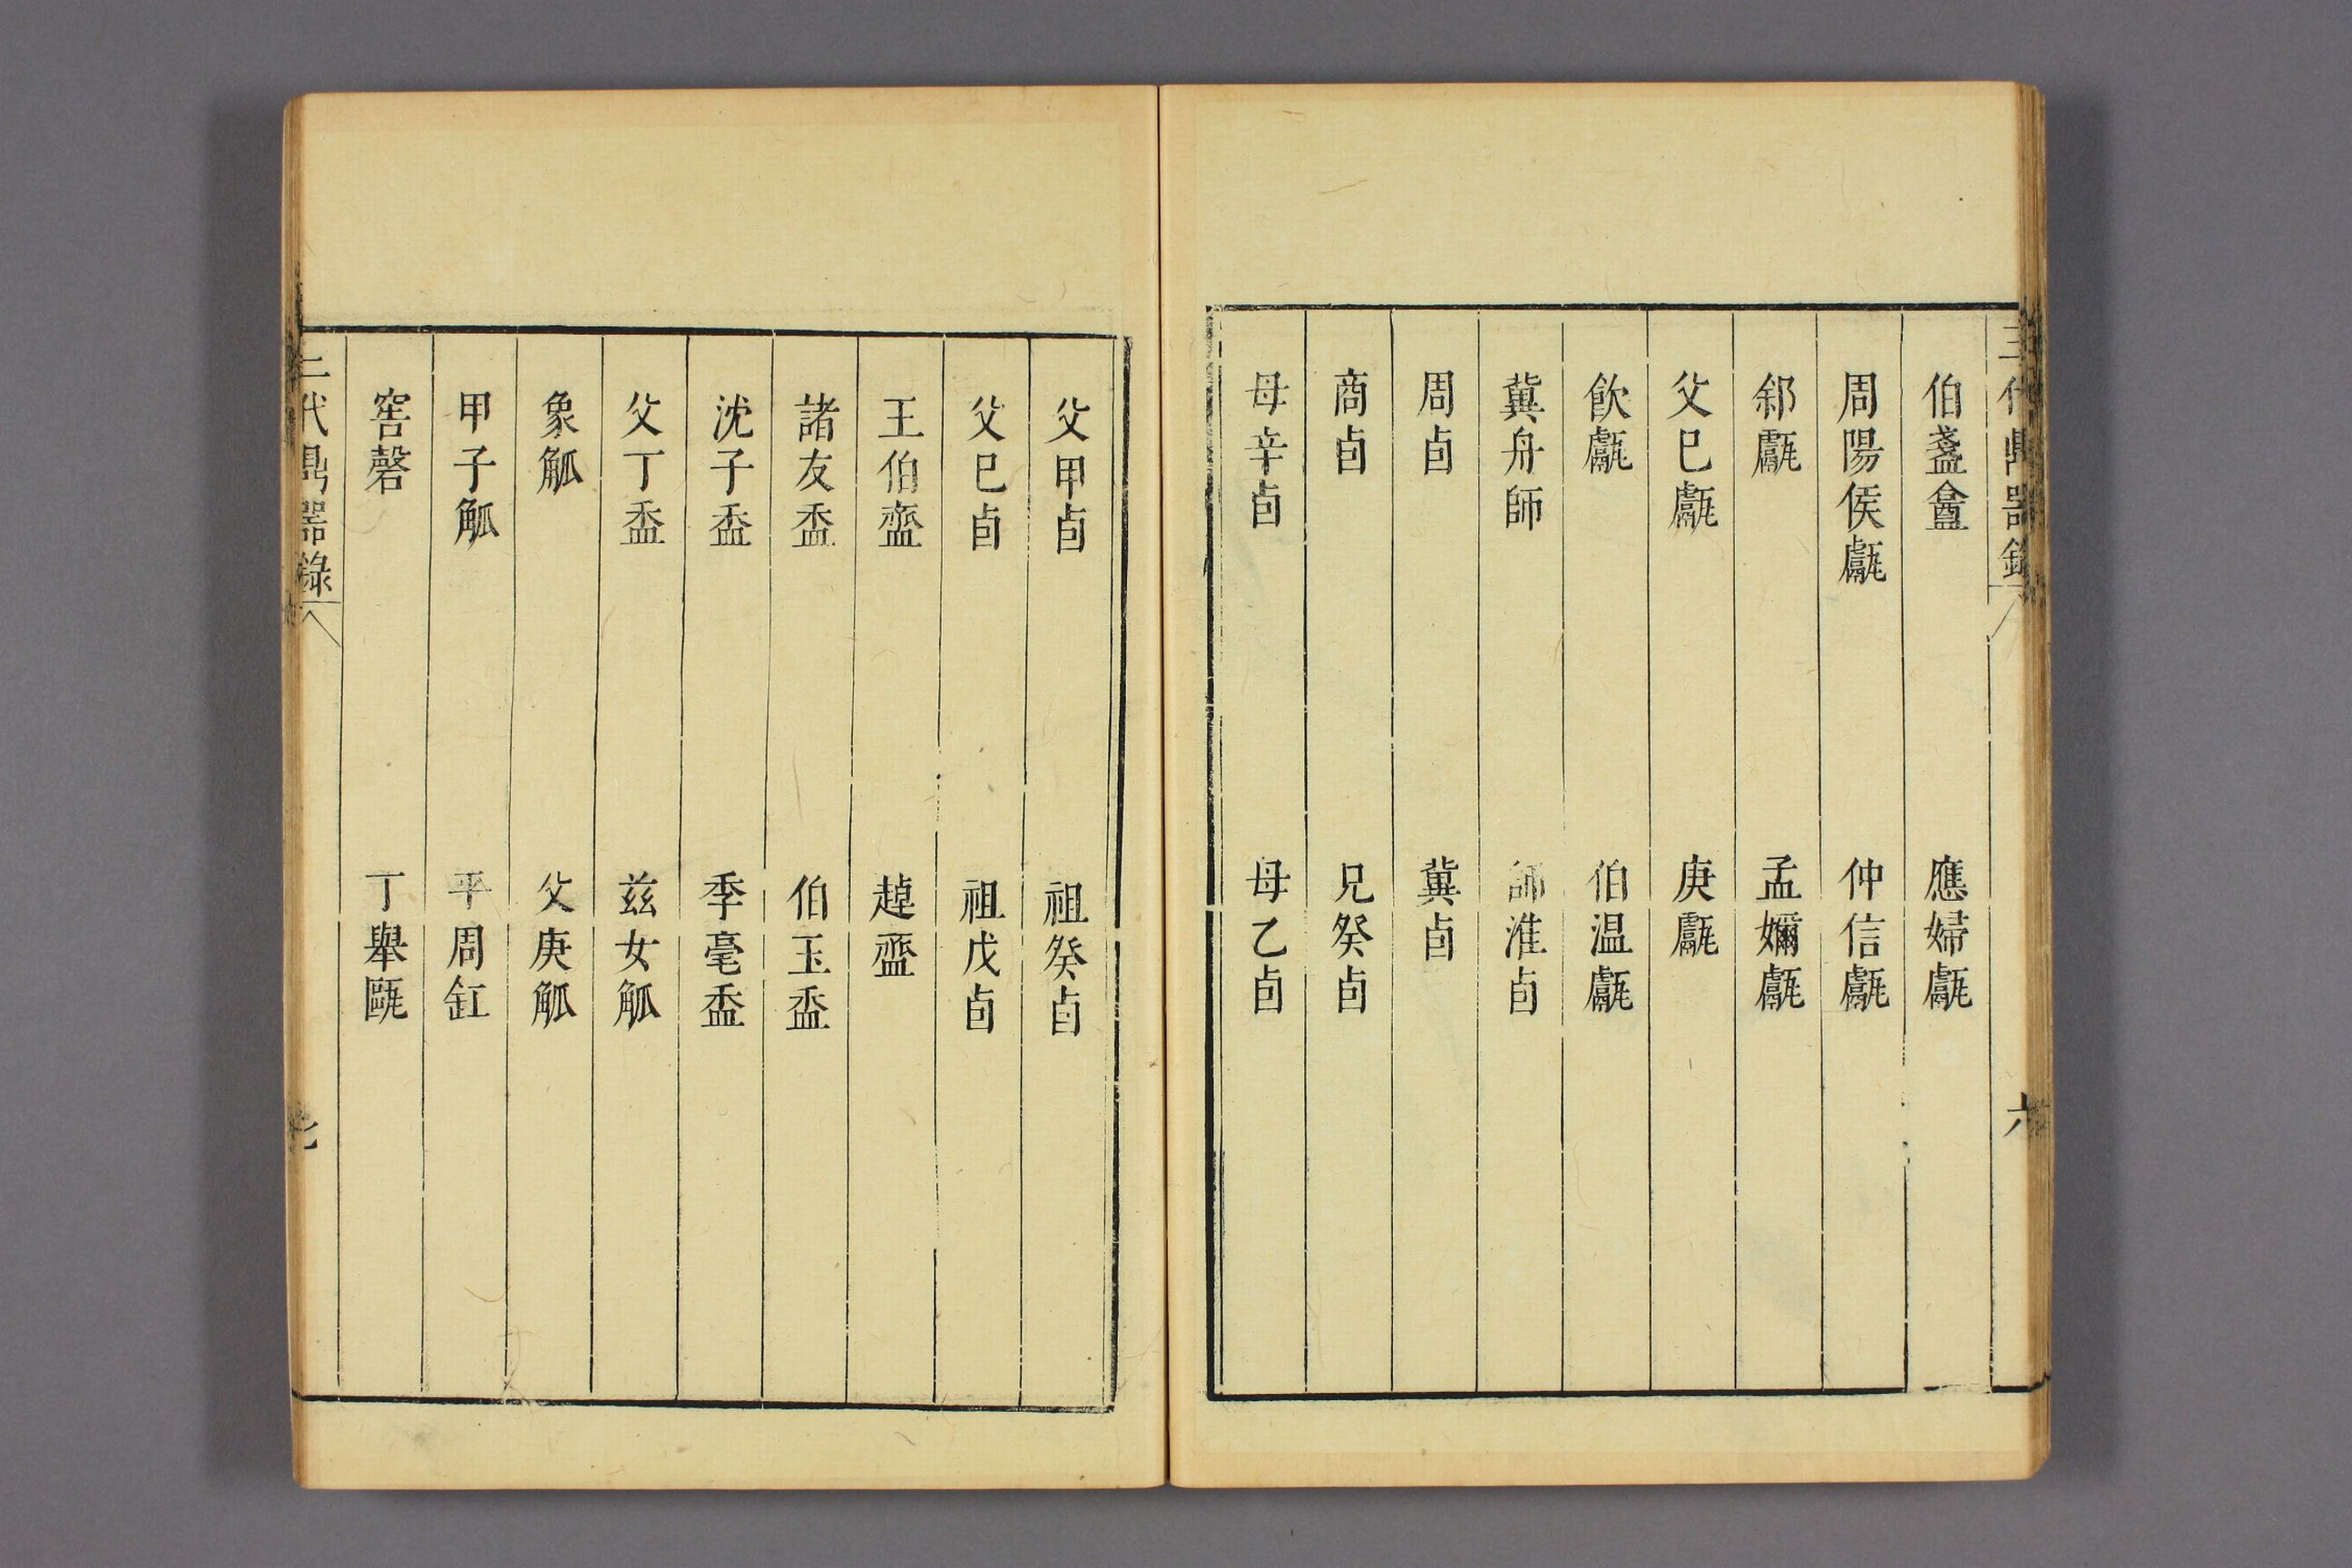 三代鼎器錄
六
伯盞盦
應婦甗
周陽侯甗
仲信甗
邾甗
孟嬭甗
父巳甗
庚甗
飲甗
伯温甗
冀舟師
師淮卣
周卣
冀卣
商卣
兄癸卣
母辛卣
母乙卣
父甲卣
祖癸卣
父巳卣
祖戊卣
王伯盉
趠盉
諸友盉
伯玉盉
沈子盉
季毫盉
父丁盉
兹女觚
象觚
父庚觚
甲子觚
平周缸
窖磬
丁舉甌
三代鼎器錄
七